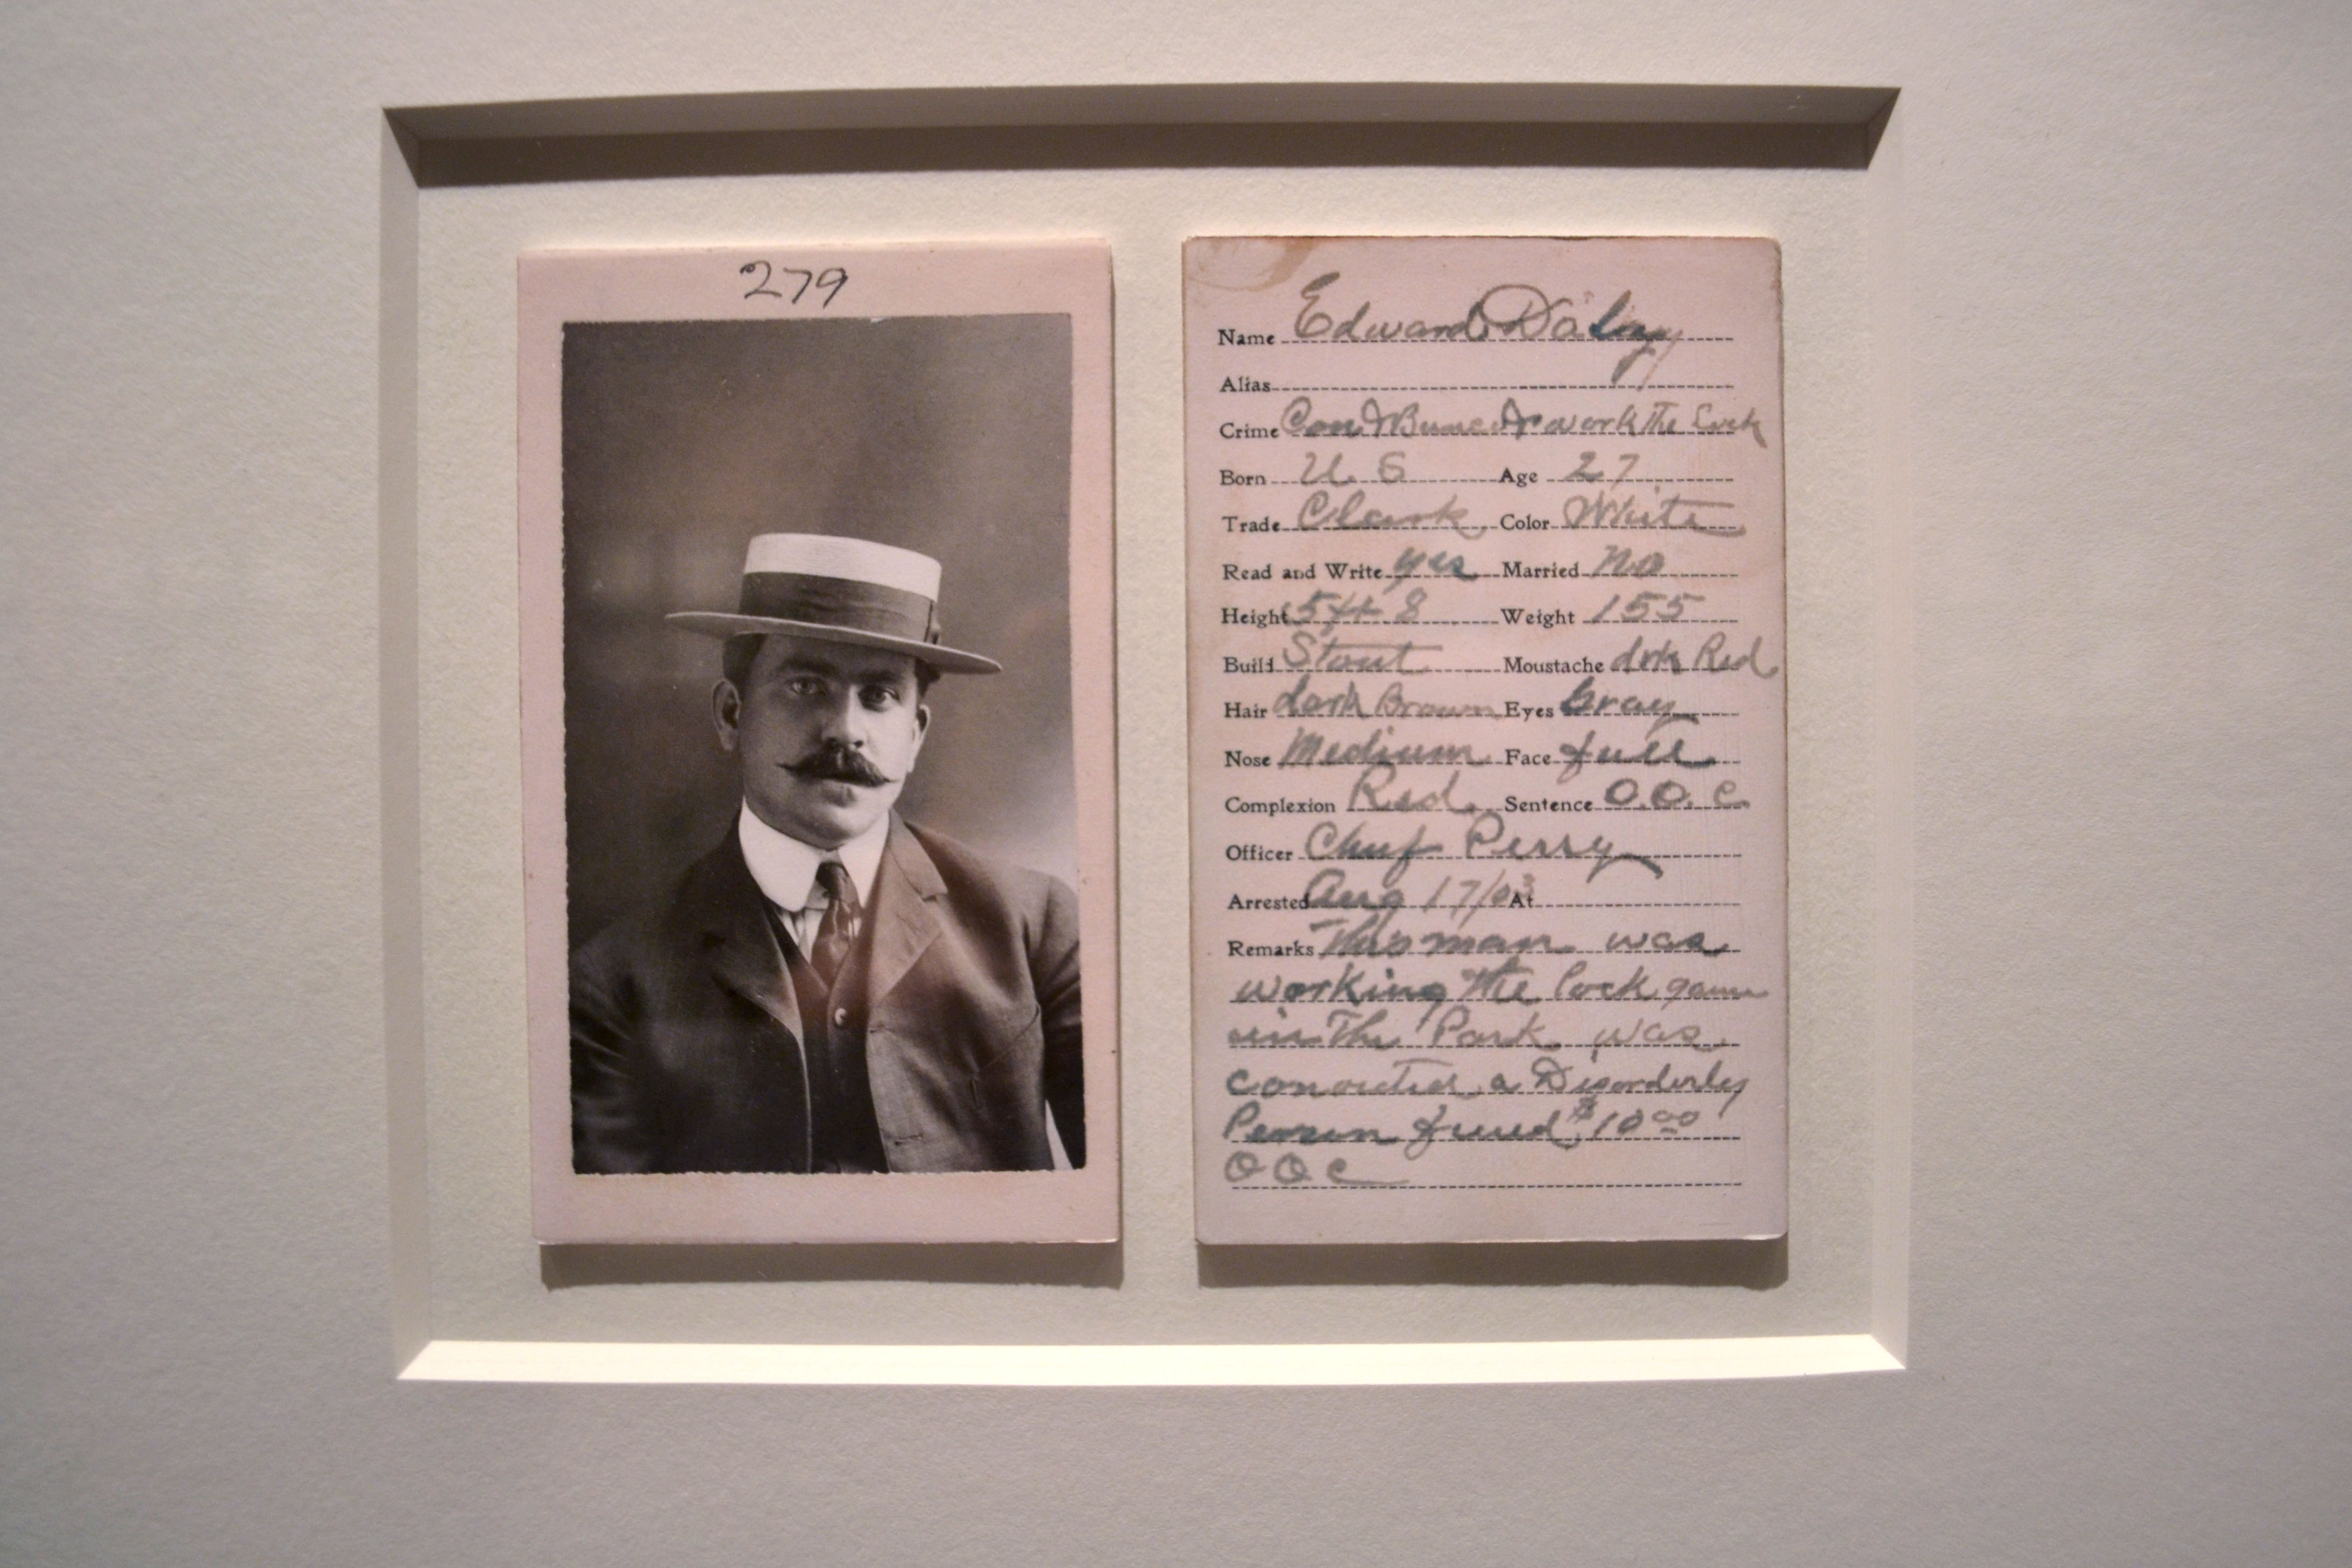 279
Name Edward Daley
Alias
Crime Con & Bunco & work the Lock
Born U. S Age 27
Trade Clark Color White
Read and Write yes Married No
Height 5 ft 8 Weight 155
Build Stout Moustache drk Red
Hair dark Brown Eyes Gray
Nose Medium Face full
Complexion Red Sentence O.O.C.
Officer Chief Perry
Arrested Aug 17/03 At
Remarks This man was
working the lock game
in The Park was
convicted a Disorderly
Person fined $10 00
OOC